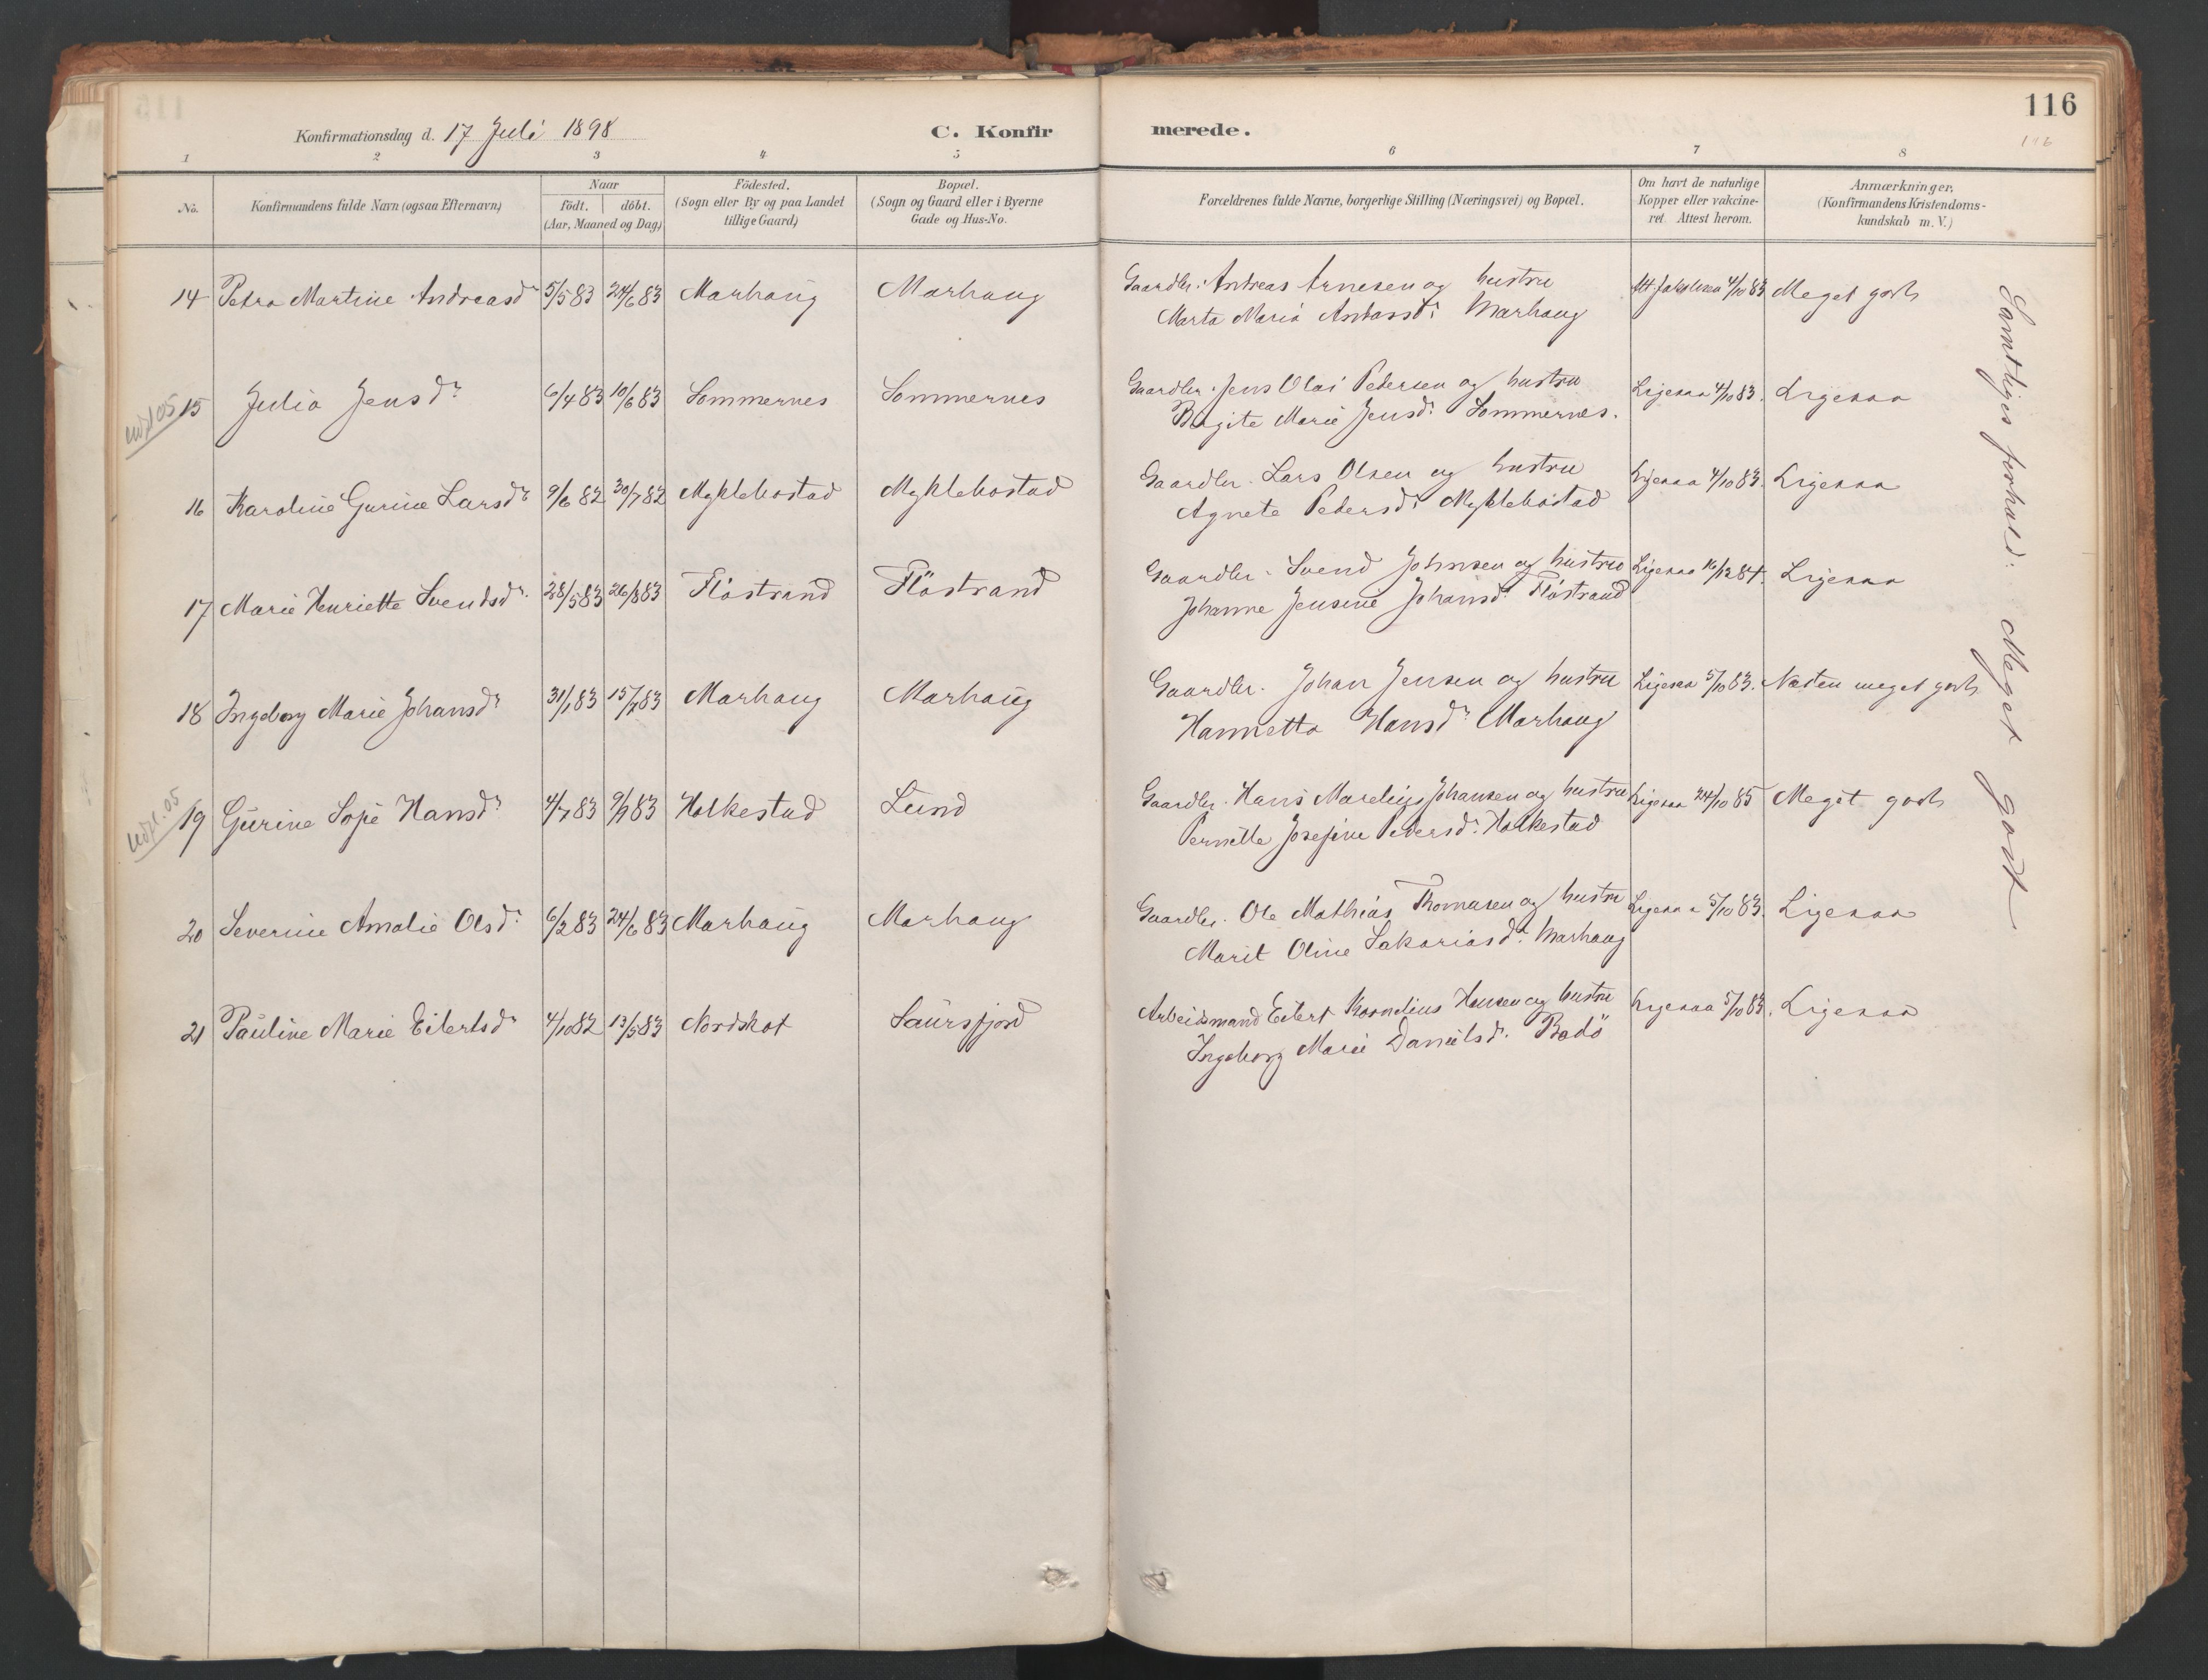 116
116
Konfirmationsdag d. 17 Juli 1898
C. Konfirmerede.
1 2 3 4 5 6 7 8
No.
Konfirmandens fulde Navn (ogsaa Efternavn)
Naar
födt. döbt.
(Aar, Maaned og Dag)
Födested.
(Sogn eller By og paa Landet
tillige Gaard)
Bopæl.
(Sogn og Gaard eller i Byerne
Gade og Hus-No.
Forældrenes fulde Navne, borgerlige Stilling (Næringsvei) og Bopæl.
Om havt de naturlige
Kopper eller vakcine-
ret. Attest herom.
Anmærkninger.
(Konfirmandens Kristendoms-
kundskab m. V.)
14 Petra Martine Andreasdr 5/5 83 24/6 83 Marhaug Marhaug Gaardbr. Andreas Arnesen og hustru Att Jakobsen 4/10 83 Meget godt
Marta Maria Antonsdr Marhaug
15 Julia Jensdr 6/4 83 10/6 83 Sommernes Sommernes Gaardbr. Jens Olai Pedersen og hustru Ligesaa 4/10 83. Ligesaa
Birgite Marie Jensdr Sommernes.
16 Karoline Gurine Larsdr 9/6 82 30/7 82 Myklebostad Myklebostad Gaardbr. Lars Olsen og hustru Ligesaa 4/10 83. Ligesaa
Agnete Pedersdr Myklebostad
17 Marie Henriette Svendsdr. 28/5 83 26/8 83 Flöstrand Flöstrand Gaardbr. Svend Johnsen og hustru Ligesaa 16/12 84. Ligesaa
Johanne Jensine Johansdr Flöstrand
18 Ingeborg Marie Johansdr 31/1 83 15/7 83 Marhaug Marhaug Gaardbr. Johan Jensen og hustru Ligesaa 5/10 83. Næsten meget godt
Hannetta Hansdr Marhaug
19 Gurine Sofie Hansdr 4/7 83 9/9 83 Holkestad Lund Gaardbr. Hans Marelius Johansen og hustru Ligesaa 24/10 85 Meget godt
Pernille Josefine Pedersdr. Holkestad
20 Severine Amalie Olsdr. 6/3 83 24/6 83 Marhaug Marhaug Gaardbr. Ole Mathias Thomasen og hustru Ligesaa 5/10 83. Ligesaa
Marit Oline Sakariasdr. Marhaug
21 Pauline Marie Eilertsdr 4/10 82 13/5 83 Nordskot Laursfjord Arbeidsmand Eilert Kornelius Hansen og hustru Ligesaa 5/10 83. Ligesaa
Ingeborg Marie Danielsdr. Bodö
Samtliges forhold: Meget godt